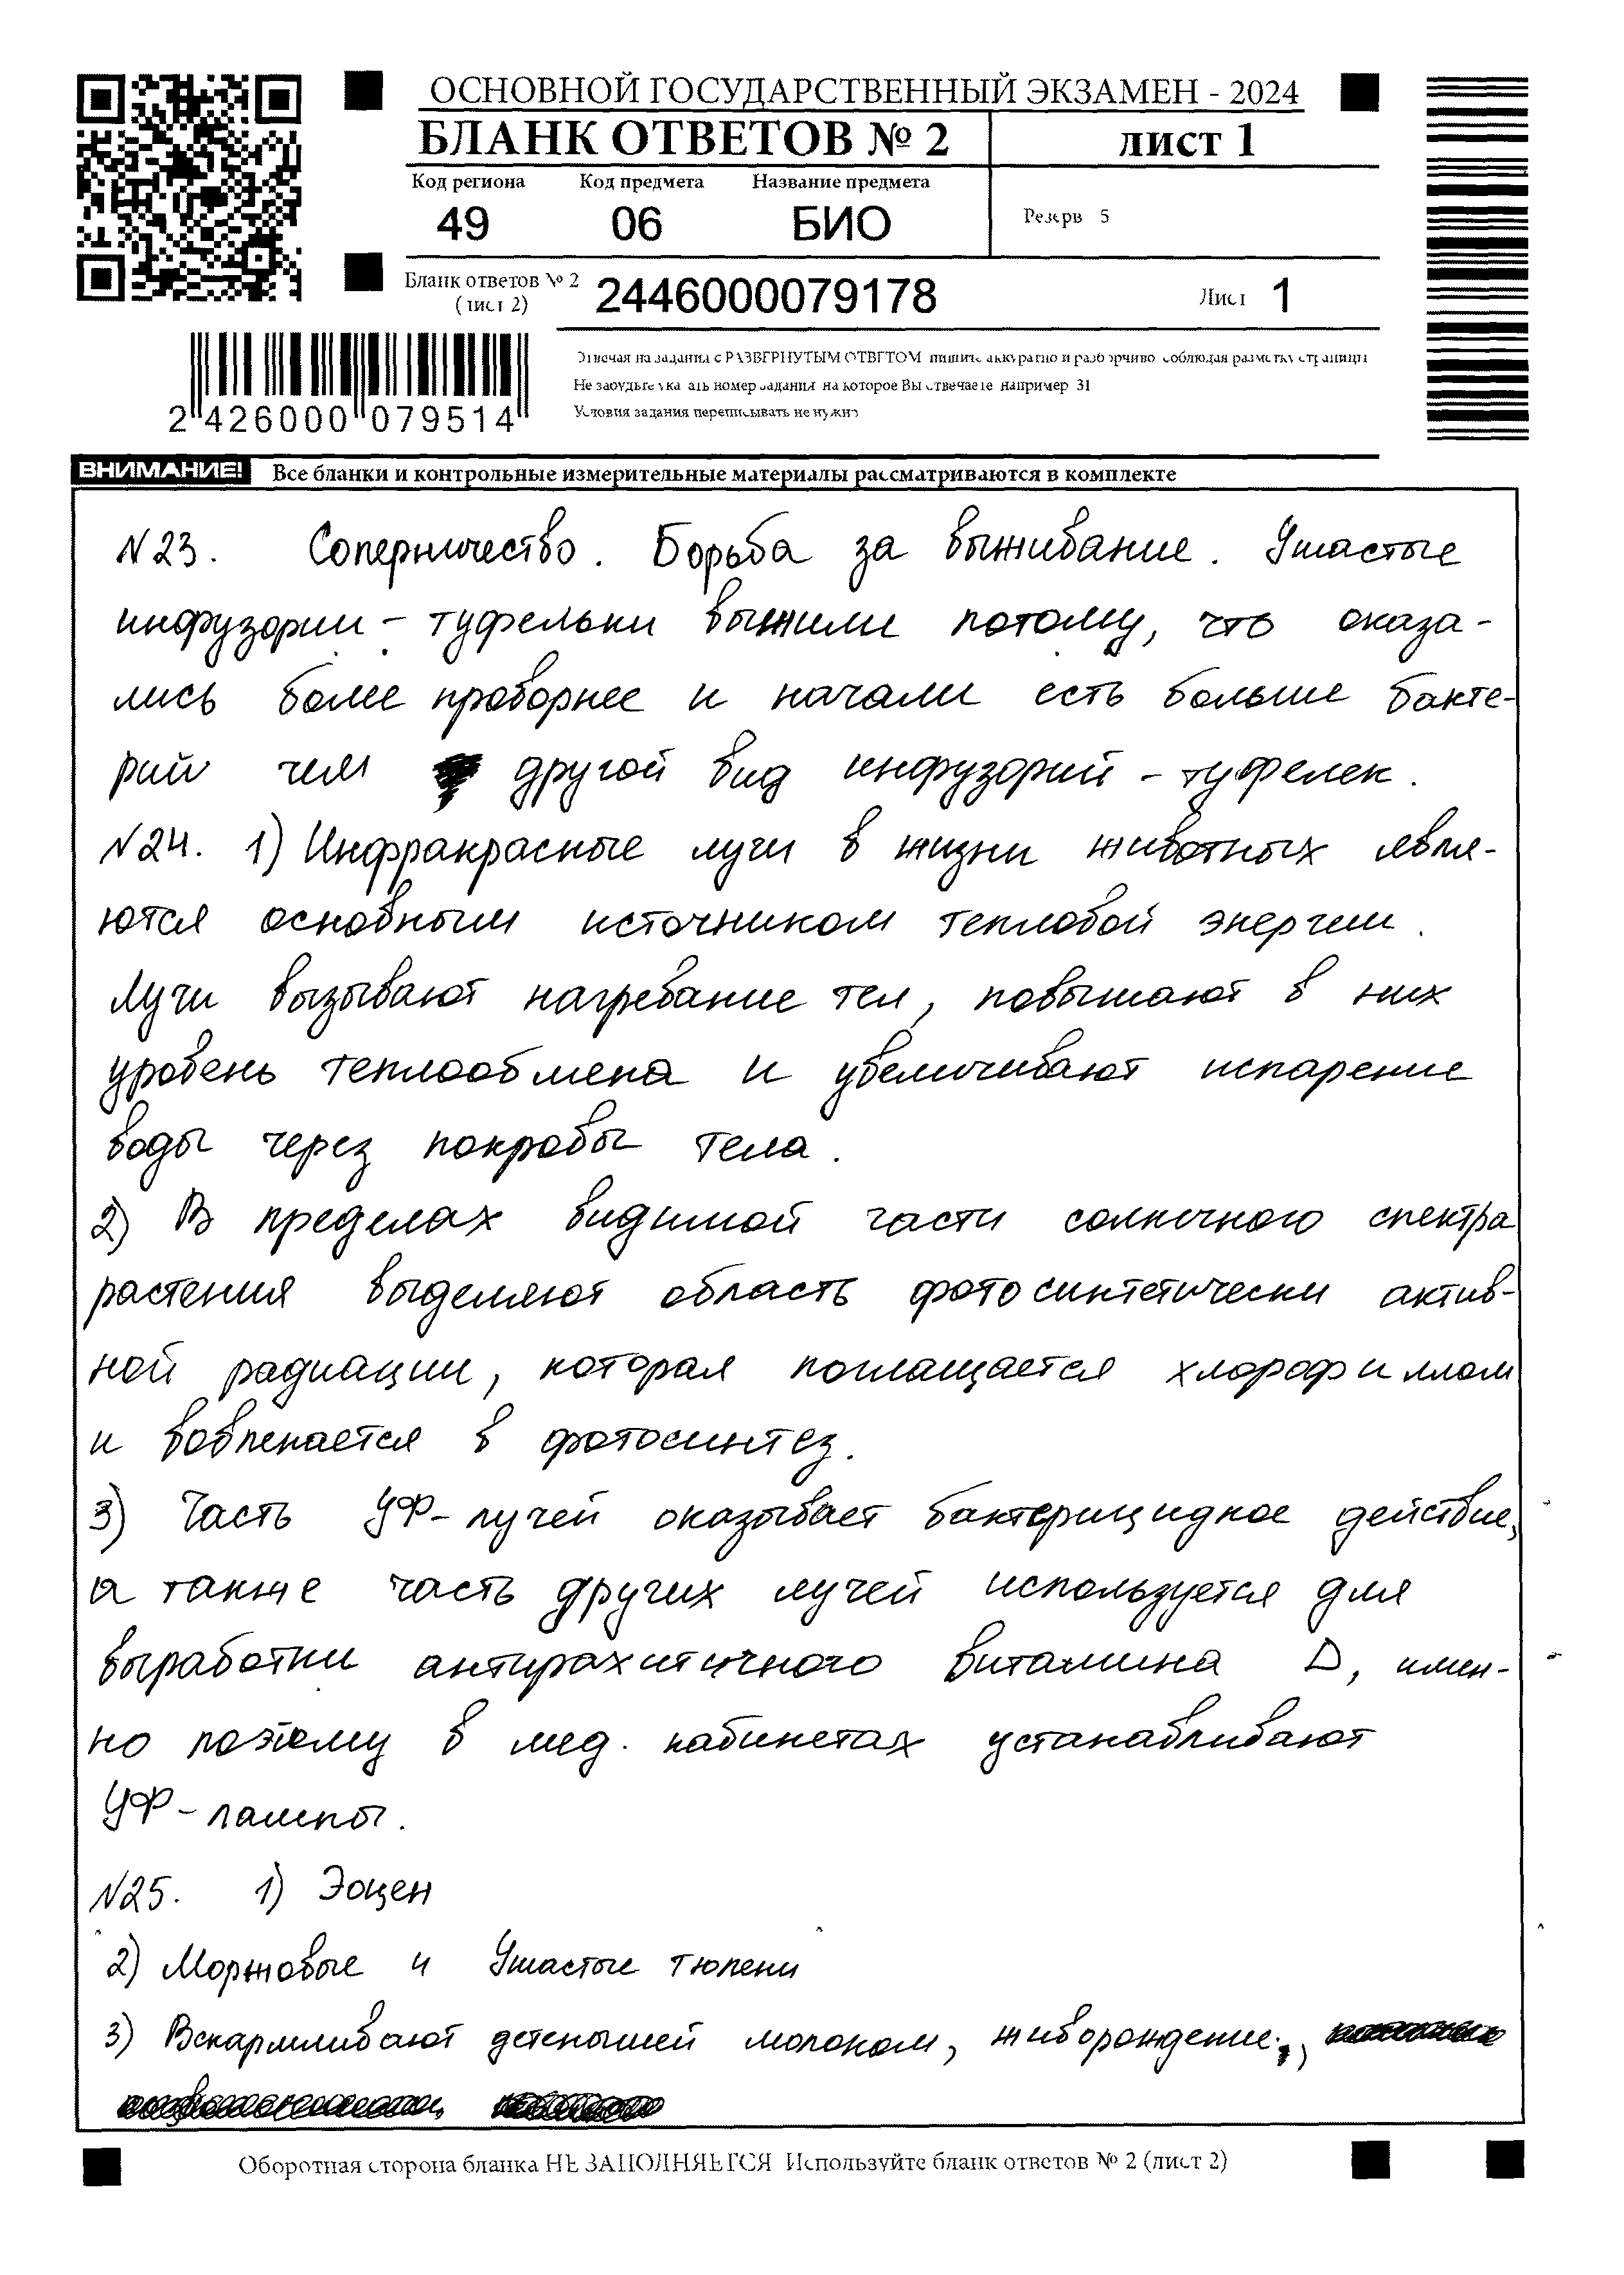 ОСНОВНОЙ ГОСУДАРСТВЕННЫЙ ЭКЗАМЕН - 2024
БЛАНК ОТВЕТОВ № 2
лист 1
Код региона
Код предмета
Название предмета
49
06
БИО
Резерв 5
Бланк ответов № 2
(лист 2)
2446000079178
Лист
1
Отвечая на задания с РАЗВЕРНУТЫМ ОТВЕТОМ пишите аккуратно и разборчиво соблюдая разметку страницы
Не забудьте указать номер задания на которое Вы отвечаете например 31
Условия задания переписывать не нужно
2 426000 079514
ВНИМАНИЕ!
Все бланки и контрольные измерительные материалы рассматриваются в комплекте
N23. Соперничество. Борьба за выживание. Ушастые
инфузории - туфельки выжили потому, что оказа-
лись более проворнее и начали есть больше бакте-
рий чем другой вид инфузорий - туфелек.
N24. 1) Инфракрасные лучи в жизни животных явля-
ются основным источником тепловой энергии.
Лучи вызывают нагревание тел, повышают в них
уровень теплообмена и увеличивают испарение
воды через покровы тела.
2) В пределах видимой части солнечного спектра
растения выделяют область фотосинтетически актив-
ной радиации, которая поглащается хлорофиллом
и вовлекается в фотосинтез.
3) Часть УФ-лучей оказывает бактерицидное действие,
а также часть других лучей используется для
выработки антирахитичного витамина D, имен-
но поэтому в мед. кабинетах устанавливают
УФ-лампы.
N25. 1) Эоцен
2) Моржовые и Ушастые тюлени
3) Вскармливают детенышей молоком, живорождение,
Оборотная сторона бланка НЕ ЗАПОЛНЯЕТСЯ Используйте бланк ответов № 2 (лист 2)